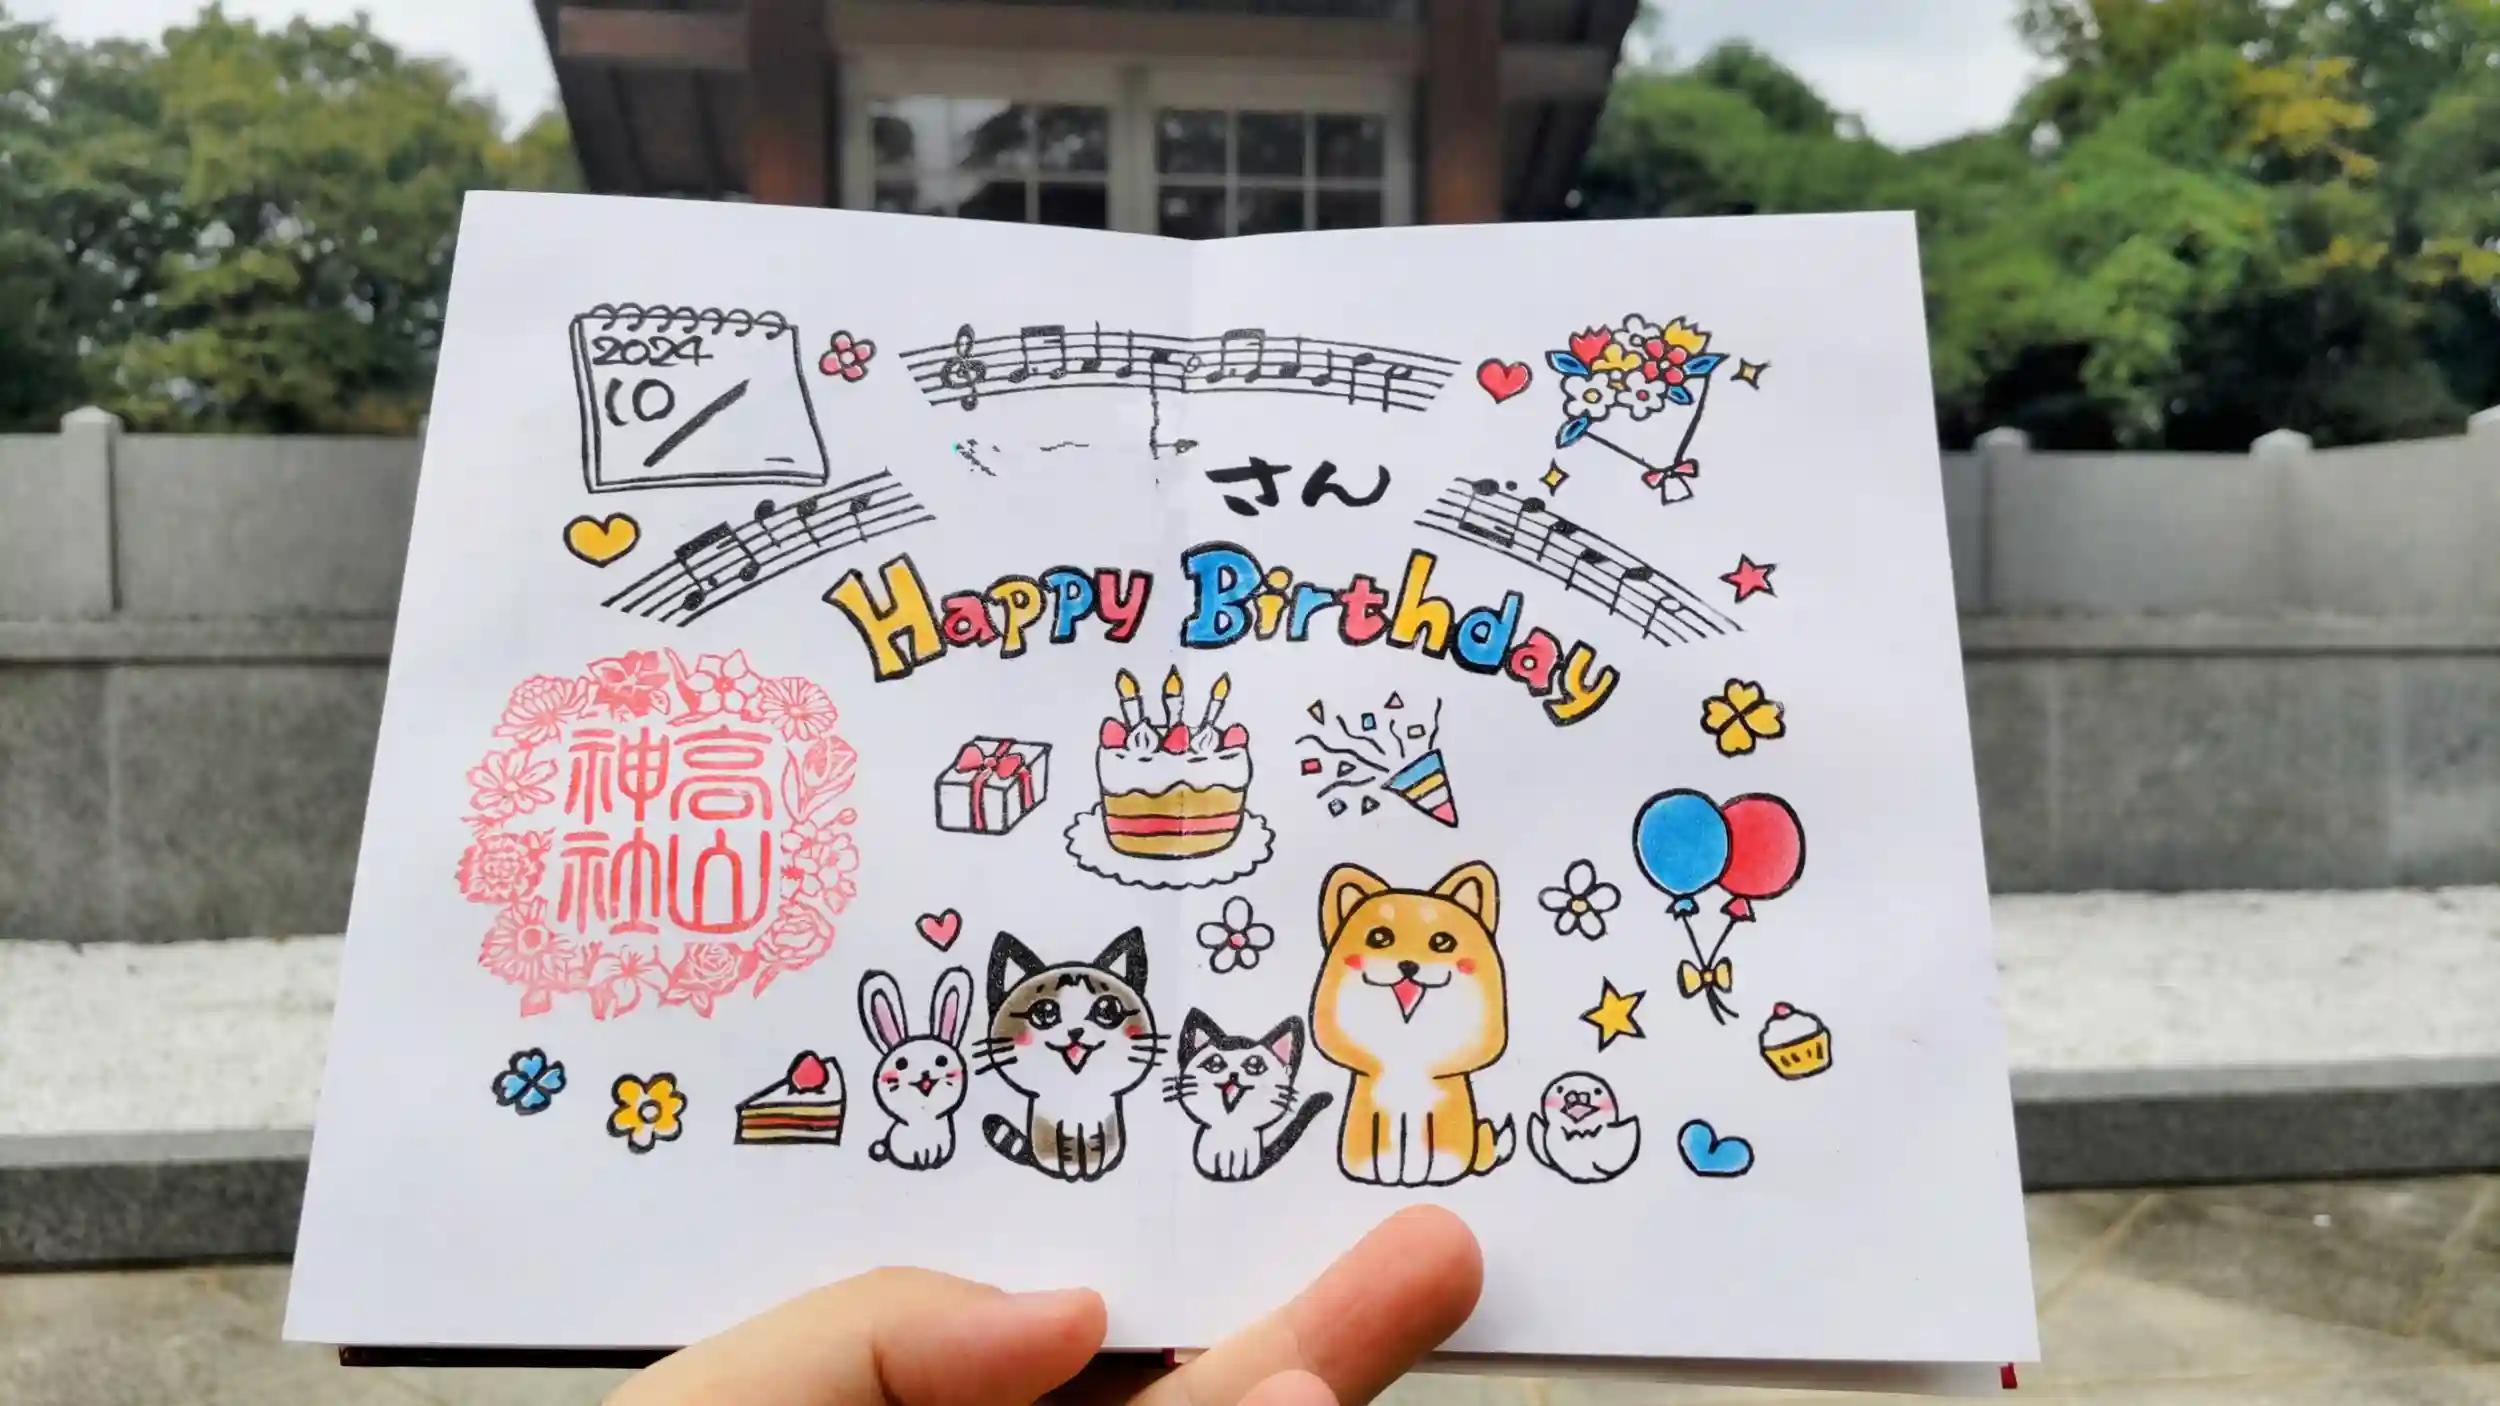 2024
10/
さん
Happy Birthday
高山
神社